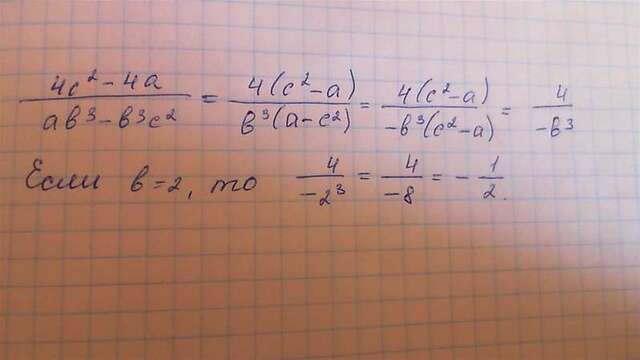 (4c² - 4a)/(aв³ - в³c²) = 4(c² - a)/(в³(a - c²)) = 4(c² - a)/(-в³(c² - a)) = 4/(-в³)
Если в = 2, то 4/(-2³) = 4/(-8) = - 1/2.